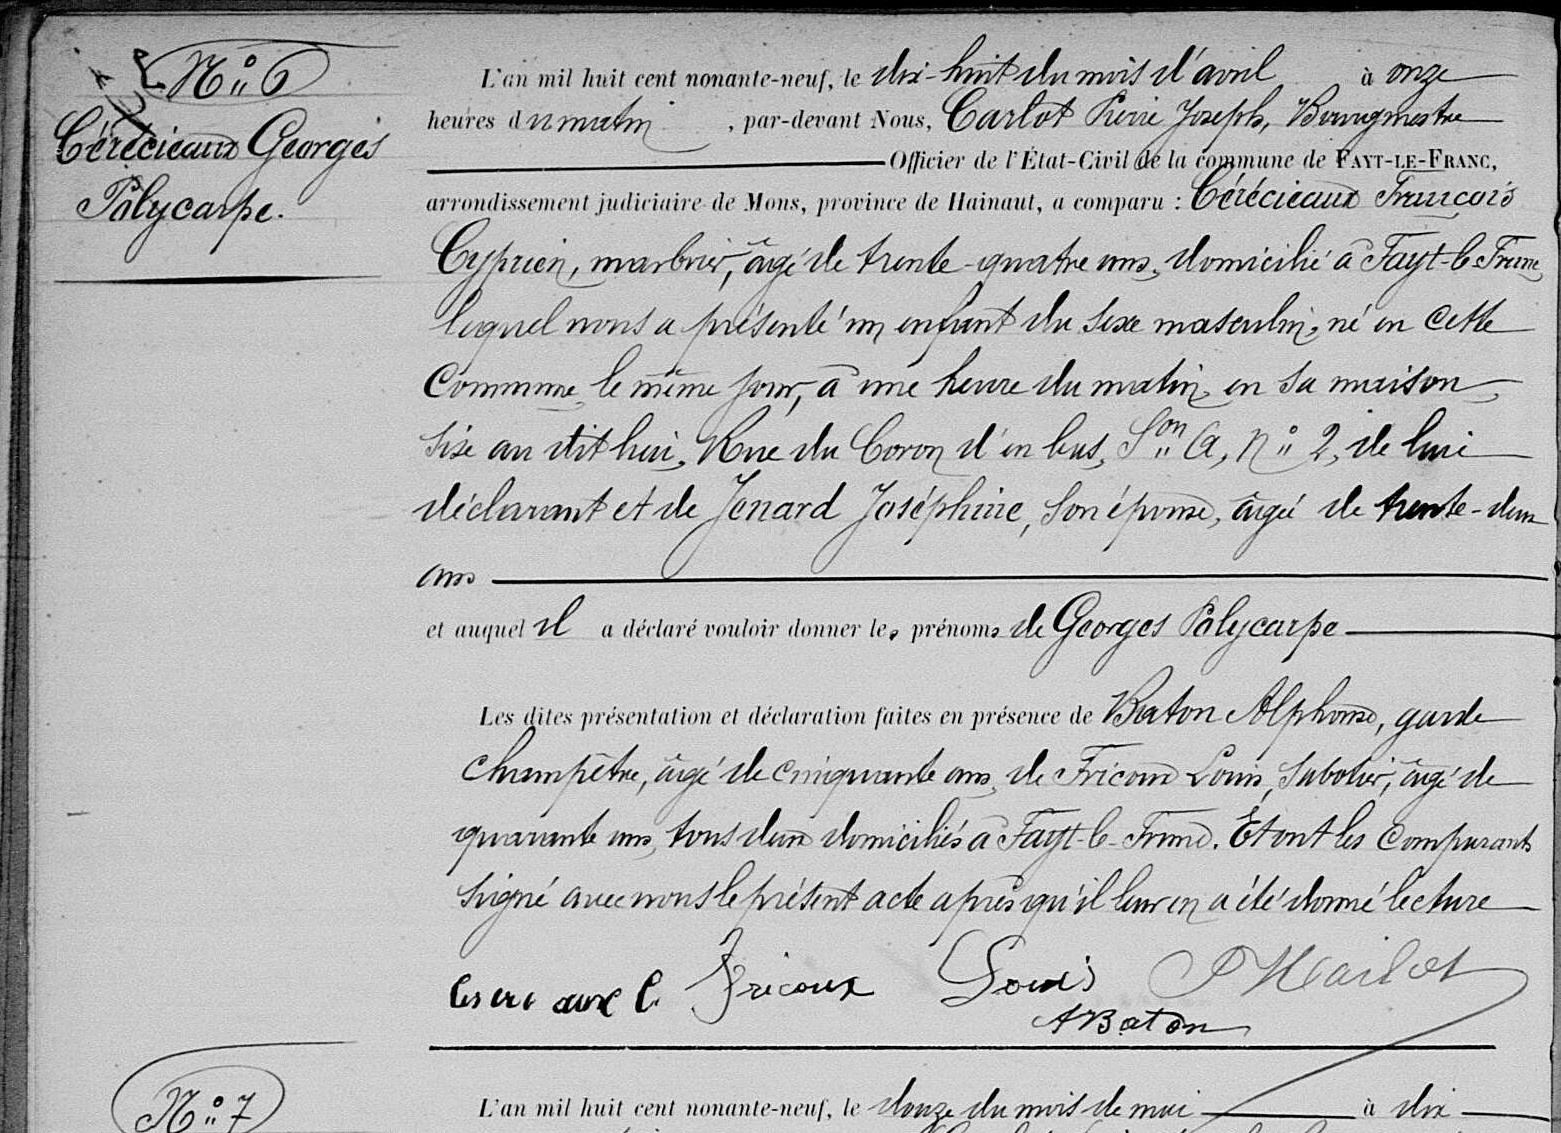 N° 6
Cérécieaux Georges
Polycarpe.
L'an mil huit cent nonante-neuf, le dix-huit du mois d'avril à onze
heures du matin, par-devant Nous, Carlot Pierre Joseph, Bourgmestre
Officier de l'État-Civil de la commune de FAYT-LE-FRANC,
arrondissement judiciaire de Mons, province de Hainaut, a comparu : Cérécieaux François
Cyprien, marbrier, âgé de trente-quatre ans, domicilié à Fayt-le-Franc
lequel nous a présenté un enfant du sexe masculin, né en cette
Commune, le même jour, à une heure du matin, en sa maison
sise au dit lieu, Rue du Coron d'en bas, Son A, N° 2, de lui
déclarant et de Jenard Joséphine, son épouse, âgée de trente-deux
ans
et auquel il a déclaré vouloir donner les prénoms de Georges Polycarpe
Les dites présentation et déclaration faites en présence de Baton Alphonse, garde
champêtre, âgé de cinquante ans, de Fricoux Louis, sabotier, âgé de
quarante ans, tous deux domiciliés à Fayt-le-Franc. Et ont les comparants
signé avec nous le présent acte après qu'il leur en a été donné lecture
Fricoux Louis
A Baton
N° 7
L'an mil huit cent nonante-neuf, le douze du mois de mai à dix